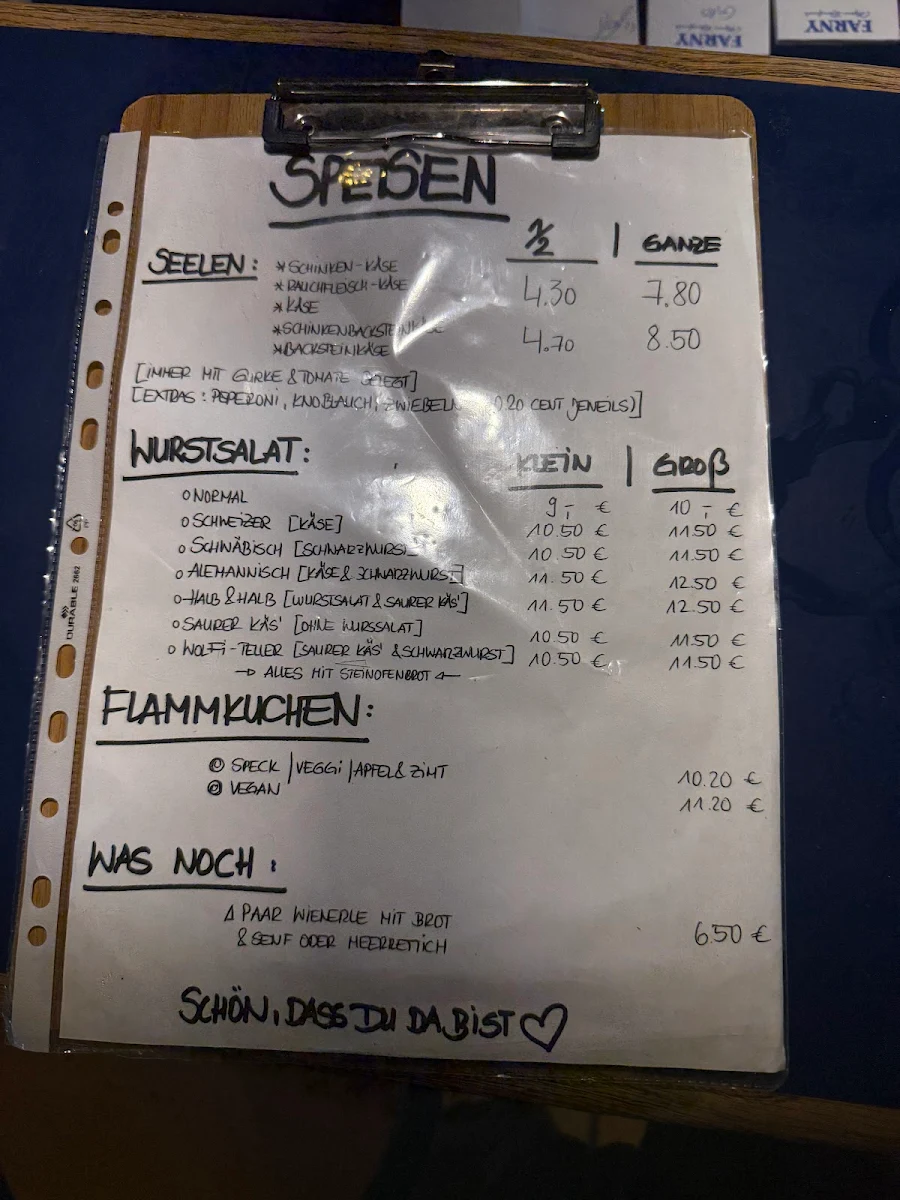 FARNY
FARNY
SPEISEN
1/2 | GANZE
SEELEN: * SCHINKEN-KÄSE
* RAUCHFLEISCH-KÄSE 4.30 7.80
* KÄSE
* SCHINKENBACKSTEINKÄSE 4.70 8.50
* BACKSTEINKÄSE
[IMMER MIT GURKE & TOMATE BELEGT]
[EXTRAS: PEPERONI, KNOBLAUCH, ZWIEBELN 0.20 CENT JEWEILS)]
WURSTSALAT: KLEIN | GROß
O NORMAL 9,- € 10,- €
O SCHWEIZER [KÄSE] 10.50 € 11.50 €
O SCHWÄBISCH [SCHWARZWURST] 10.50 € 11.50 €
O ALEMANNISCH [KÄSE & SCHWARZWURST] 11.50 € 12.50 €
O HALB & HALB [WURSTSALAT & SAURER KÄS'] 11.50 € 12.50 €
O SAURER KÄS' [OHNE WURSSALAT] 10.50 € 11.50 €
O WOLFI-TELLER [SAURER KÄS' & SCHWARZWURST] 10.50 € 11.50 €
→ ALLES MIT STEINOFENBROT ←
FLAMMKUCHEN:
SPECK | VEGGI | APFEL & ZIMT 10.20 €
VEGAN 11.20 €
WAS NOCH:
1 PAAR WIENERLE MIT BROT
& SENF ODER MEERRETTICH 6.50 €
SCHÖN, DASS DU DA BIST ♡
DURABLE 2662